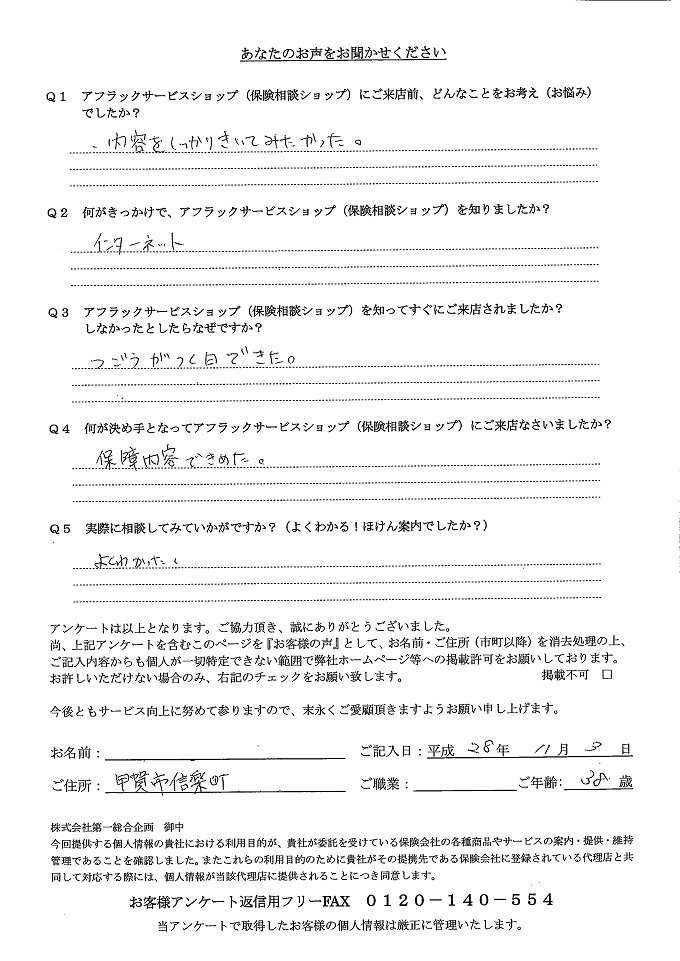 あなたのお声をお聞かせください
Q1 アフラックサービスショップ（保険相談ショップ）にご来店前、どんなことをお考え（お悩み）
でしたか？
・内容をしっかりきいてみたかった。
Q2 何がきっかけで、アフラックサービスショップ（保険相談ショップ）を知りましたか？
インターネット
Q3 アフラックサービスショップ（保険相談ショップ）を知ってすぐにご来店されましたか？
しなかったとしたらなぜですか？
つごうがつく日できた。
Q4 何が決め手となってアフラックサービスショップ（保険相談ショップ）にご来店なさいましたか？
保障内容できめた。
Q5 実際に相談してみていかがですか？（よくわかる！ほけん案内でしたか？）
よくわかった。
アンケートは以上となります。ご協力頂き、誠にありがとうございました。
尚、上記アンケートを含むこのページを『お客様の声』として、お名前・ご住所（市町以降）を消去処理の上、
ご記入内容からも個人が一切特定できない範囲で弊社ホームページ等への掲載許可をお願いしております。
お許しいただけない場合のみ、右記のチェックをお願い致します。 掲載不可 □
今後ともサービス向上に努めて参りますので、末永くご愛顧頂きますようお願い申し上げます。
お名前： ご記入日：平成 28年 11月 3日
ご住所：甲賀市信楽町 ご職業： ご年齢：38歳
株式会社第一総合企画 御中
今回提供する個人情報の貴社における利用目的が、貴社が委託を受けている保険会社の各種商品やサービスの案内・提供・維持
管理であることを確認しました。またこれらの利用目的のために貴社がその提携先である保険会社に登録されている代理店と共
同して対応する際には、個人情報が当該代理店に提供されることにつき同意します。
お客様アンケート返信用フリーFAX 0120－140－554
当アンケートで取得したお客様の個人情報は厳正に管理いたします。